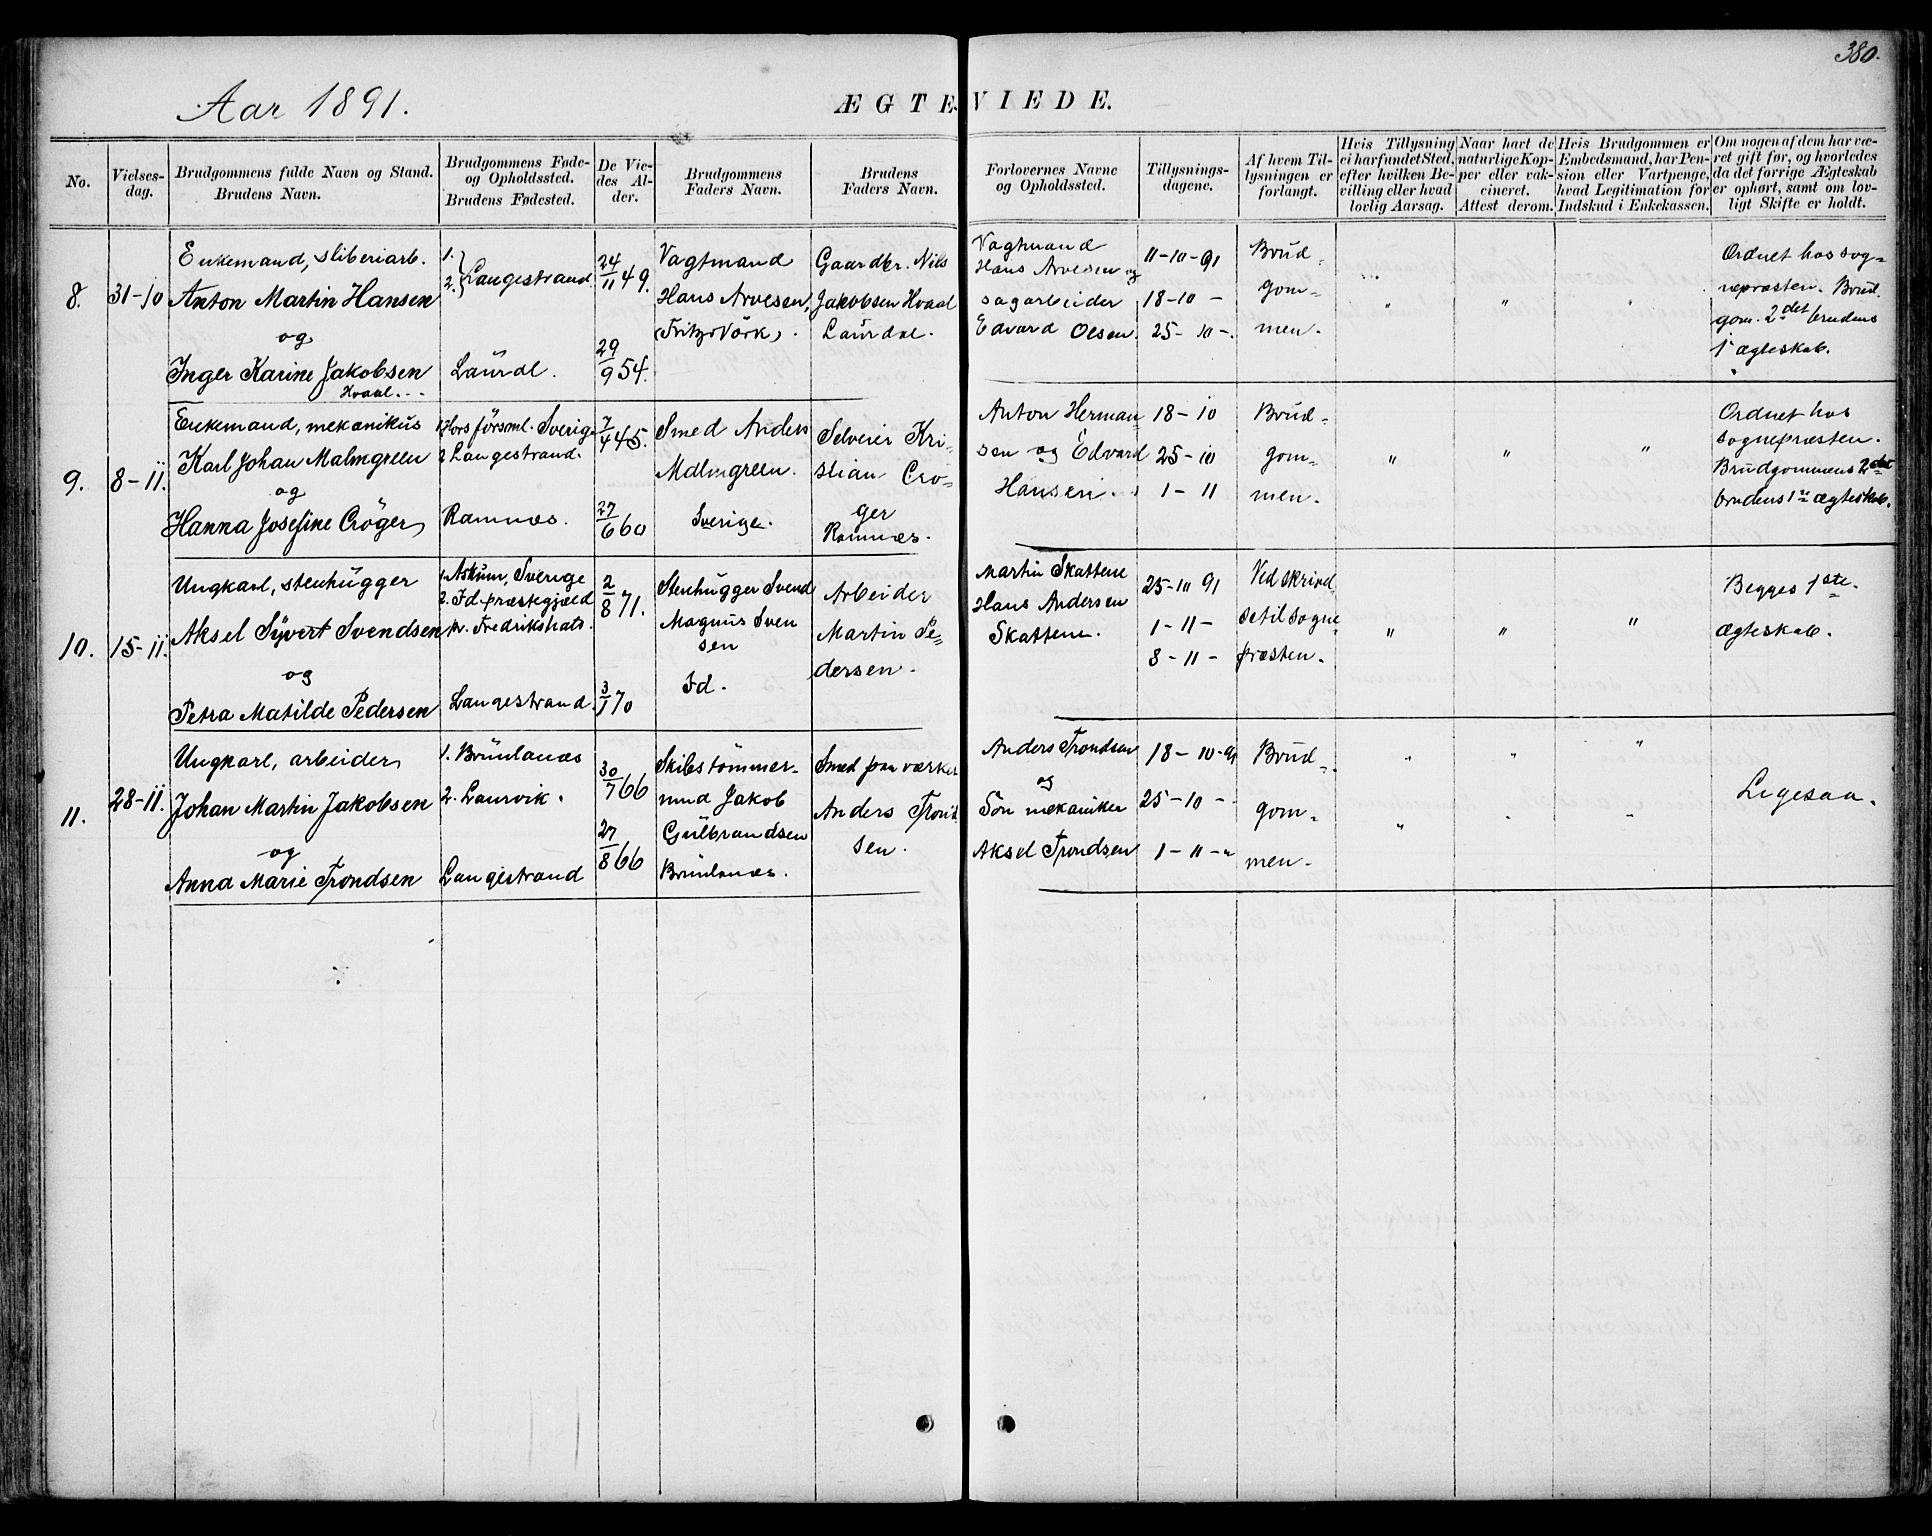 380.
Aar 1891.
ÆGTEVIEDE.
No.
Vielses-
dag.
Brudgommens fulde Navn og Stand.
Brudens Navn.
Brudgommens Føde-
og Opholdssted.
Brudens Fødested.
De Vie-
des Al-
der.
Brudgommens
Faders Navn.
Brudens
Faders Navn.
Forlovernes Navne
og Opholdssted.
Tillysnings-
dagene.
Af hvem Til-
lysningen er
forlangt.
Hvis Tillysning
ei har fundet Sted,
efter hvilken Be-
villing eller hvad
lovlig Aarsag.
Naar havt de
naturlige Kop-
per eller vak-
cineret.
Attest derom.
Hvis Brudgommen er
Embedsmand, har Pen-
sion eller Vartpenge,
hvad Legitimation for
Indskud i Enkekassen.
Om nogen af dem har væ-
ret gift før, og hvorledes
da det forrige Ægteskab
er ophørt, samt om lov-
ligt Skifte er holdt.
8.
31-10
Enkemand, sliberiarb.
Anton Martin Hansen
og
Inger Karine Jakobsen
Hvaal.
1.
2. Langestrand
Laurdl.
24/11 49.
29/9 54.
Vagtmand
Hans Arvesen,
(Fritzø Værk).
Gaardbr. Nils
Jakobsen Hvaal
Laurdal.
Vagtmand
Hans Arvesen og
sagarbeider
Edvard Olsen.
11-10-91
18-10 -
25-10 -.
Brud-
gom-
men.
" " "
Ordnet hos sog-
nepræsten. Brud.
gom. 2det brudens
1 ægteskab.
9.
8-11.
Enkemand, mekanikus
Karl Johan Malmgreen
og
Hanna Josefine Crøger
1. Hors försml. Sverige
2 Langestrand.
Ramnes.
7/4 45.
27/6 60
Smed Anders
Malmgreen.
Sverige.
Selveier Kri-
stian Crö-
ger
Ramnes.
Anton Herman
sen og Edvard
Hansen.
18-10
25-10
1-11
Brud-
gom-
men.
" " "
Ordnet hos
sognepræsten.
Brudgommens 2det
brudens 1ste ægteskab.
10.
15-11.
Ungkarl, stenhugger
Aksel Syvert Svendsen
og
Petra Matilde Pedersen
1. Askum, Sverige
2. Id præstegjeld
pr. Fredrikshald.
Langestrand.
2/8 71.
3/1 70
Stenhugger Svend
Magnus Sven
sen
Id.
Arbeider
Martin Pe-
dersen.
Martin Skattene
Hans Andersen
Skattene.
25-10 91
1-11-
8-11-
Ved skrivel
se til sogne
præsten.
" " "
Begges 1ste
ægteskab.
11.
28-11.
Ungkarl, arbeider
Johan Martin Jakobsen
og
Anna Marie Trondsen
1. Brunlanæs
2. Laurvik.
Langestrand
30/7 66
27/8 66
Skibstømmer-
mand Jakob
Gulbrandsen
Brunlanæs.
Smed paa værket
Anders Trond
sen.
Anders Trondsen
og
Søn mekaniker
Aksel Trondsen
18-10-91
25-10 -
1-11-"
Brud-
gom-
men.
" " "
Ligesaa.